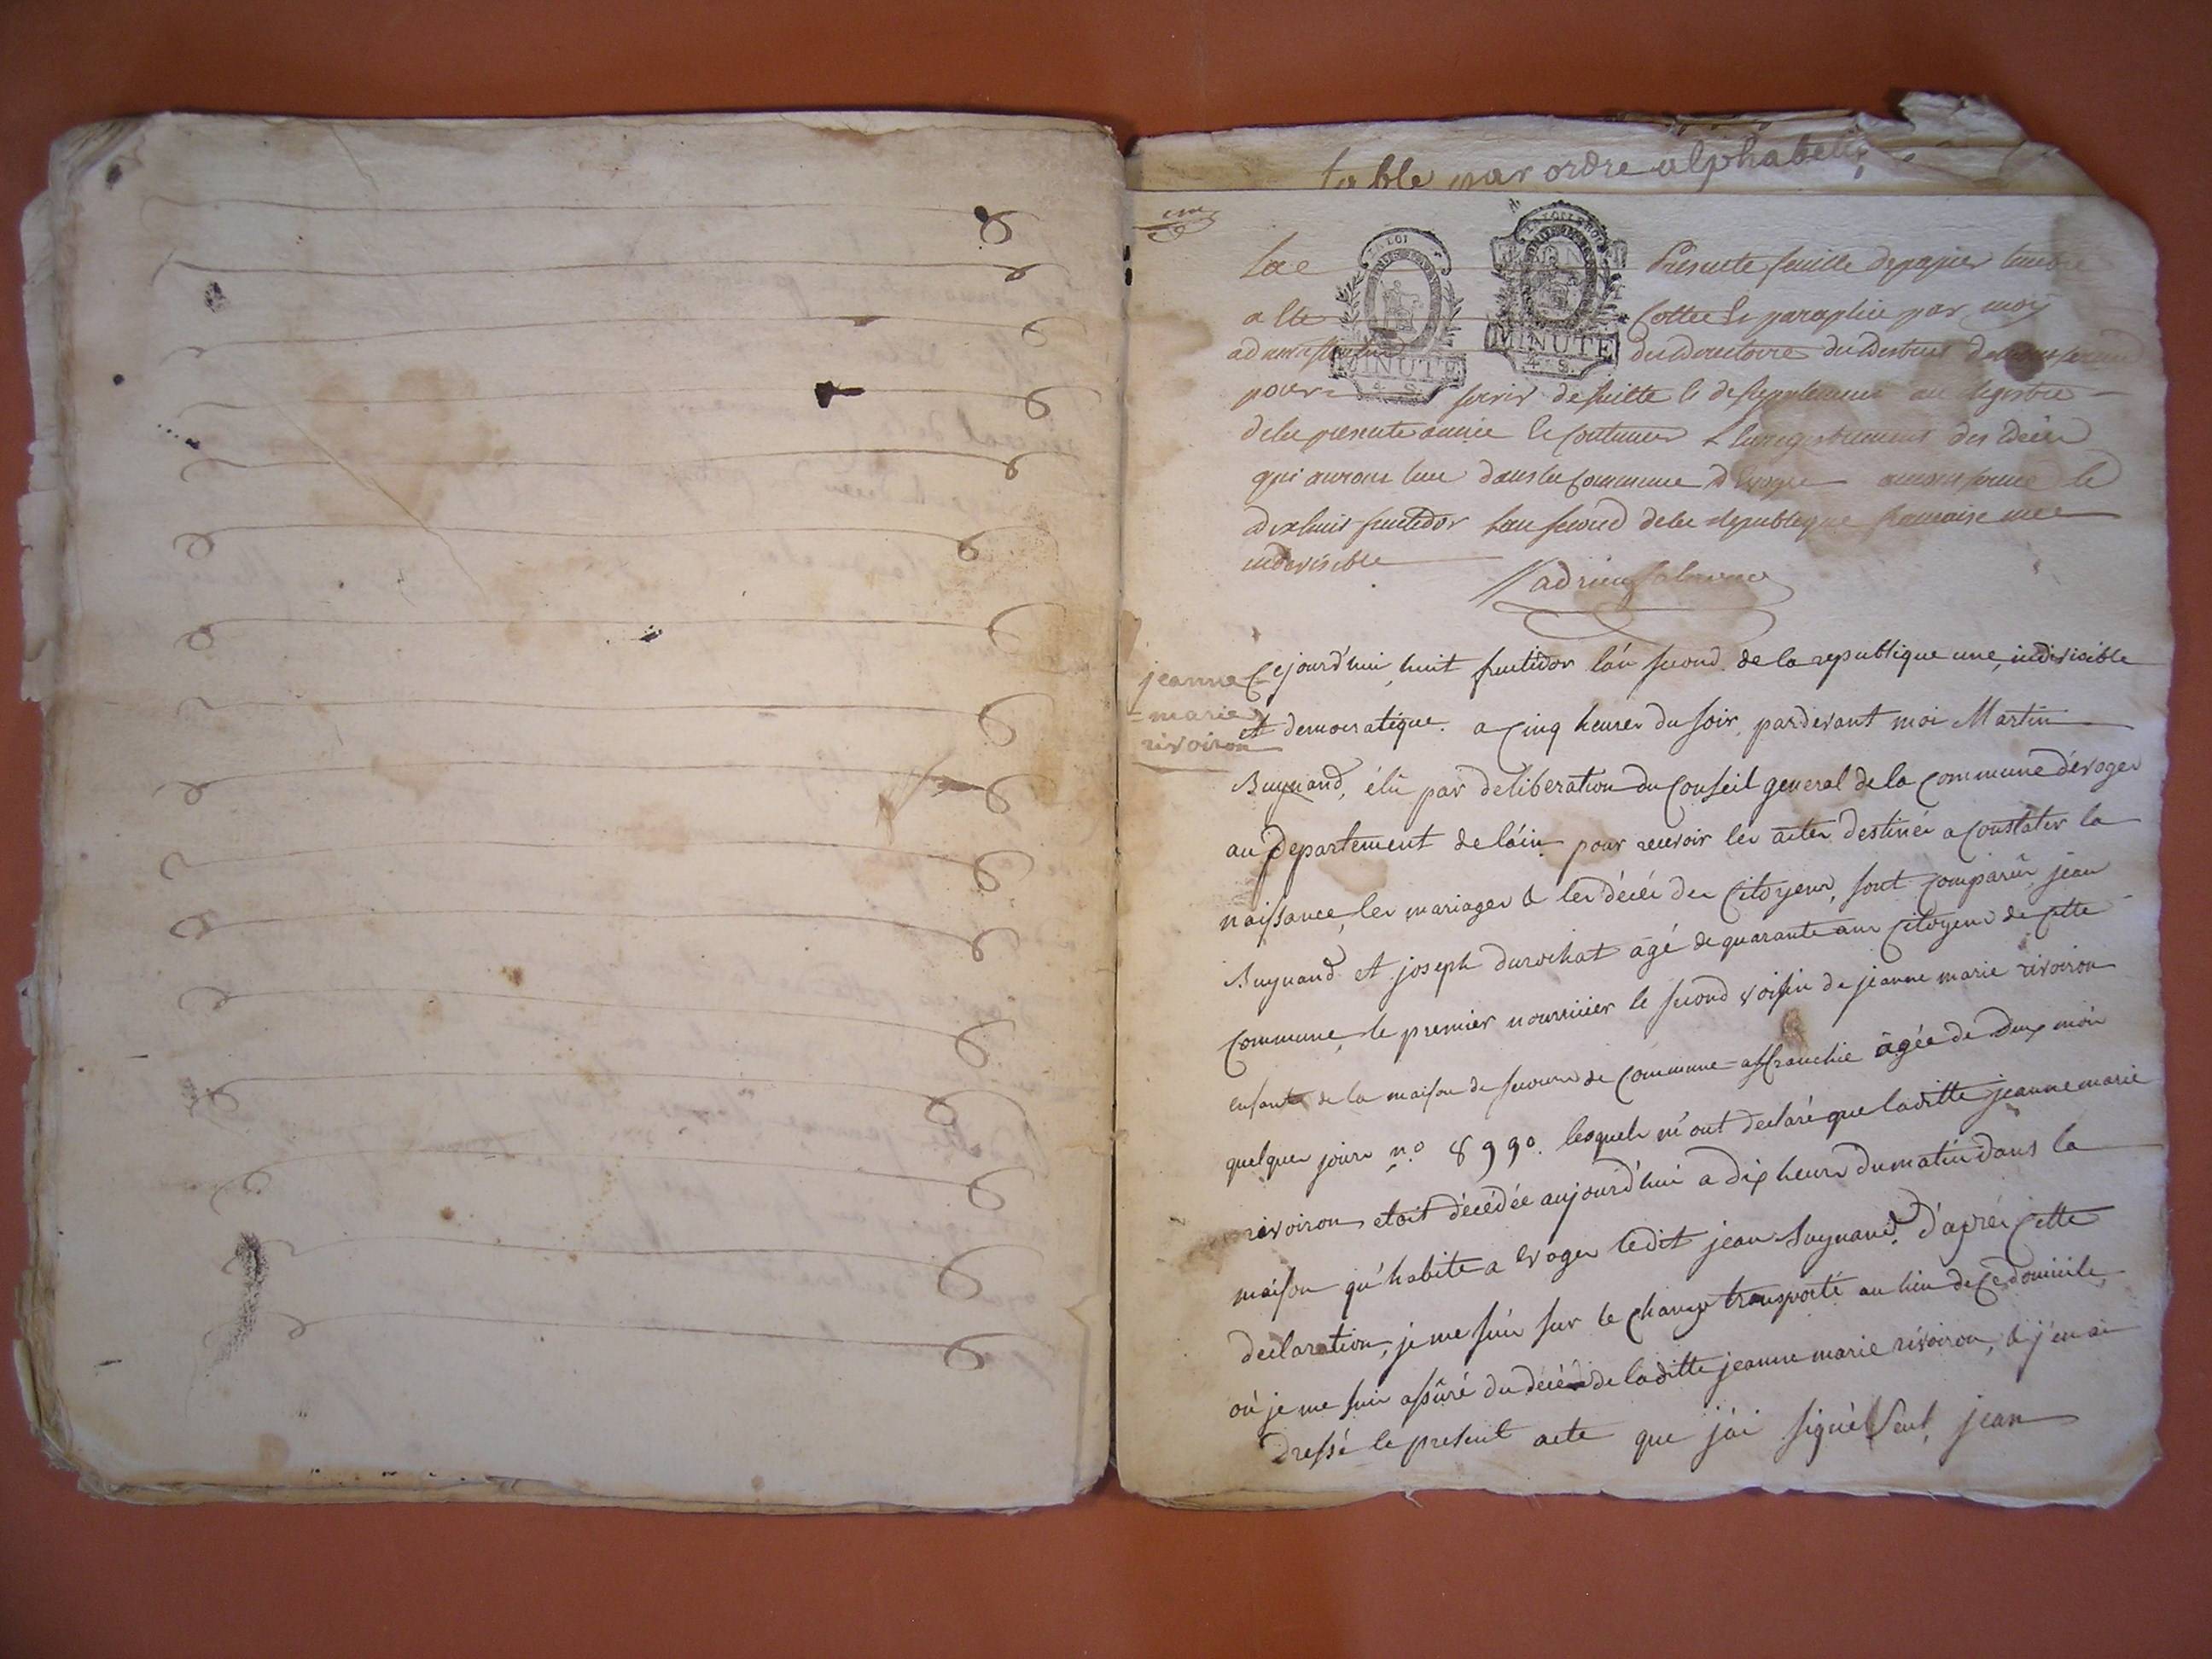 table par ordre alphabetiq
une
LA LOI
LA LOI
MINUTE
4. S.
MINUTE
4. S.
La Presente feuille de papier timbré
a été Cottée & paraphée par moy
administrateur du Directoire du District de
pour servir de suitte & de suplement au Registre
dela presente année & Continuer L'enregistrement des Décés
qui auront lieu dans la Commune d'Evoge
dixhuit fructidor L'an second dela Republique francaise une
indivisible
jeanne
= marie
rivoiron
Cejourd'hui, huit fructidor l'an second de la republique une, indivisible
et democratique. a Cinq heures du soir, pardevant moi Martin
Buynand, élû par deliberation du Conseil general de la Commune d'évoges
au Departement de l'ain pour recevoir les actes destinés a Constater la
naissance, les mariages & les décés des Citoyens, sont Comparûs jean
Buynand et joseph durochat agé de quarante ans Citoyens de Cette
Commune, le premier nourricier le second voisin de jeanne marie rivoiron
enfant de la maison de secours de Commune-affranchie âgée de deux mois
quelques jours n.o 8990. lesquels m'ont declaré que laditte jeanne marie
rivoiron etoit décédée aujourd'hui a dix heures du matin dans la
maison qu'habite a Evoges ledit jean Buynand. d'après Cette
declaration, je me suis sur le Champ transporté au lieu de Ce domicile,
où je me suis assûré du décés de laditte jeanne marie rivoiron, & j'en ai
Dressé le present acte que j'ai signé Seul, jean